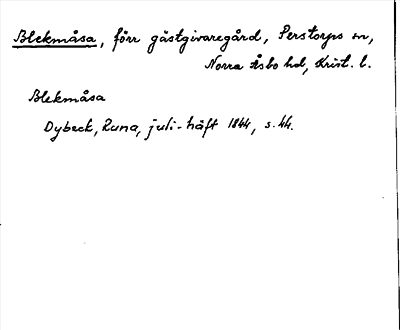 Blekmåsa, förr gästgivaregård, Perstorps sn,
Norra Åsbo hd, Krist. l.
Blekmåsa
Dybeck, Runa, juli-häft 1844, s. 44.